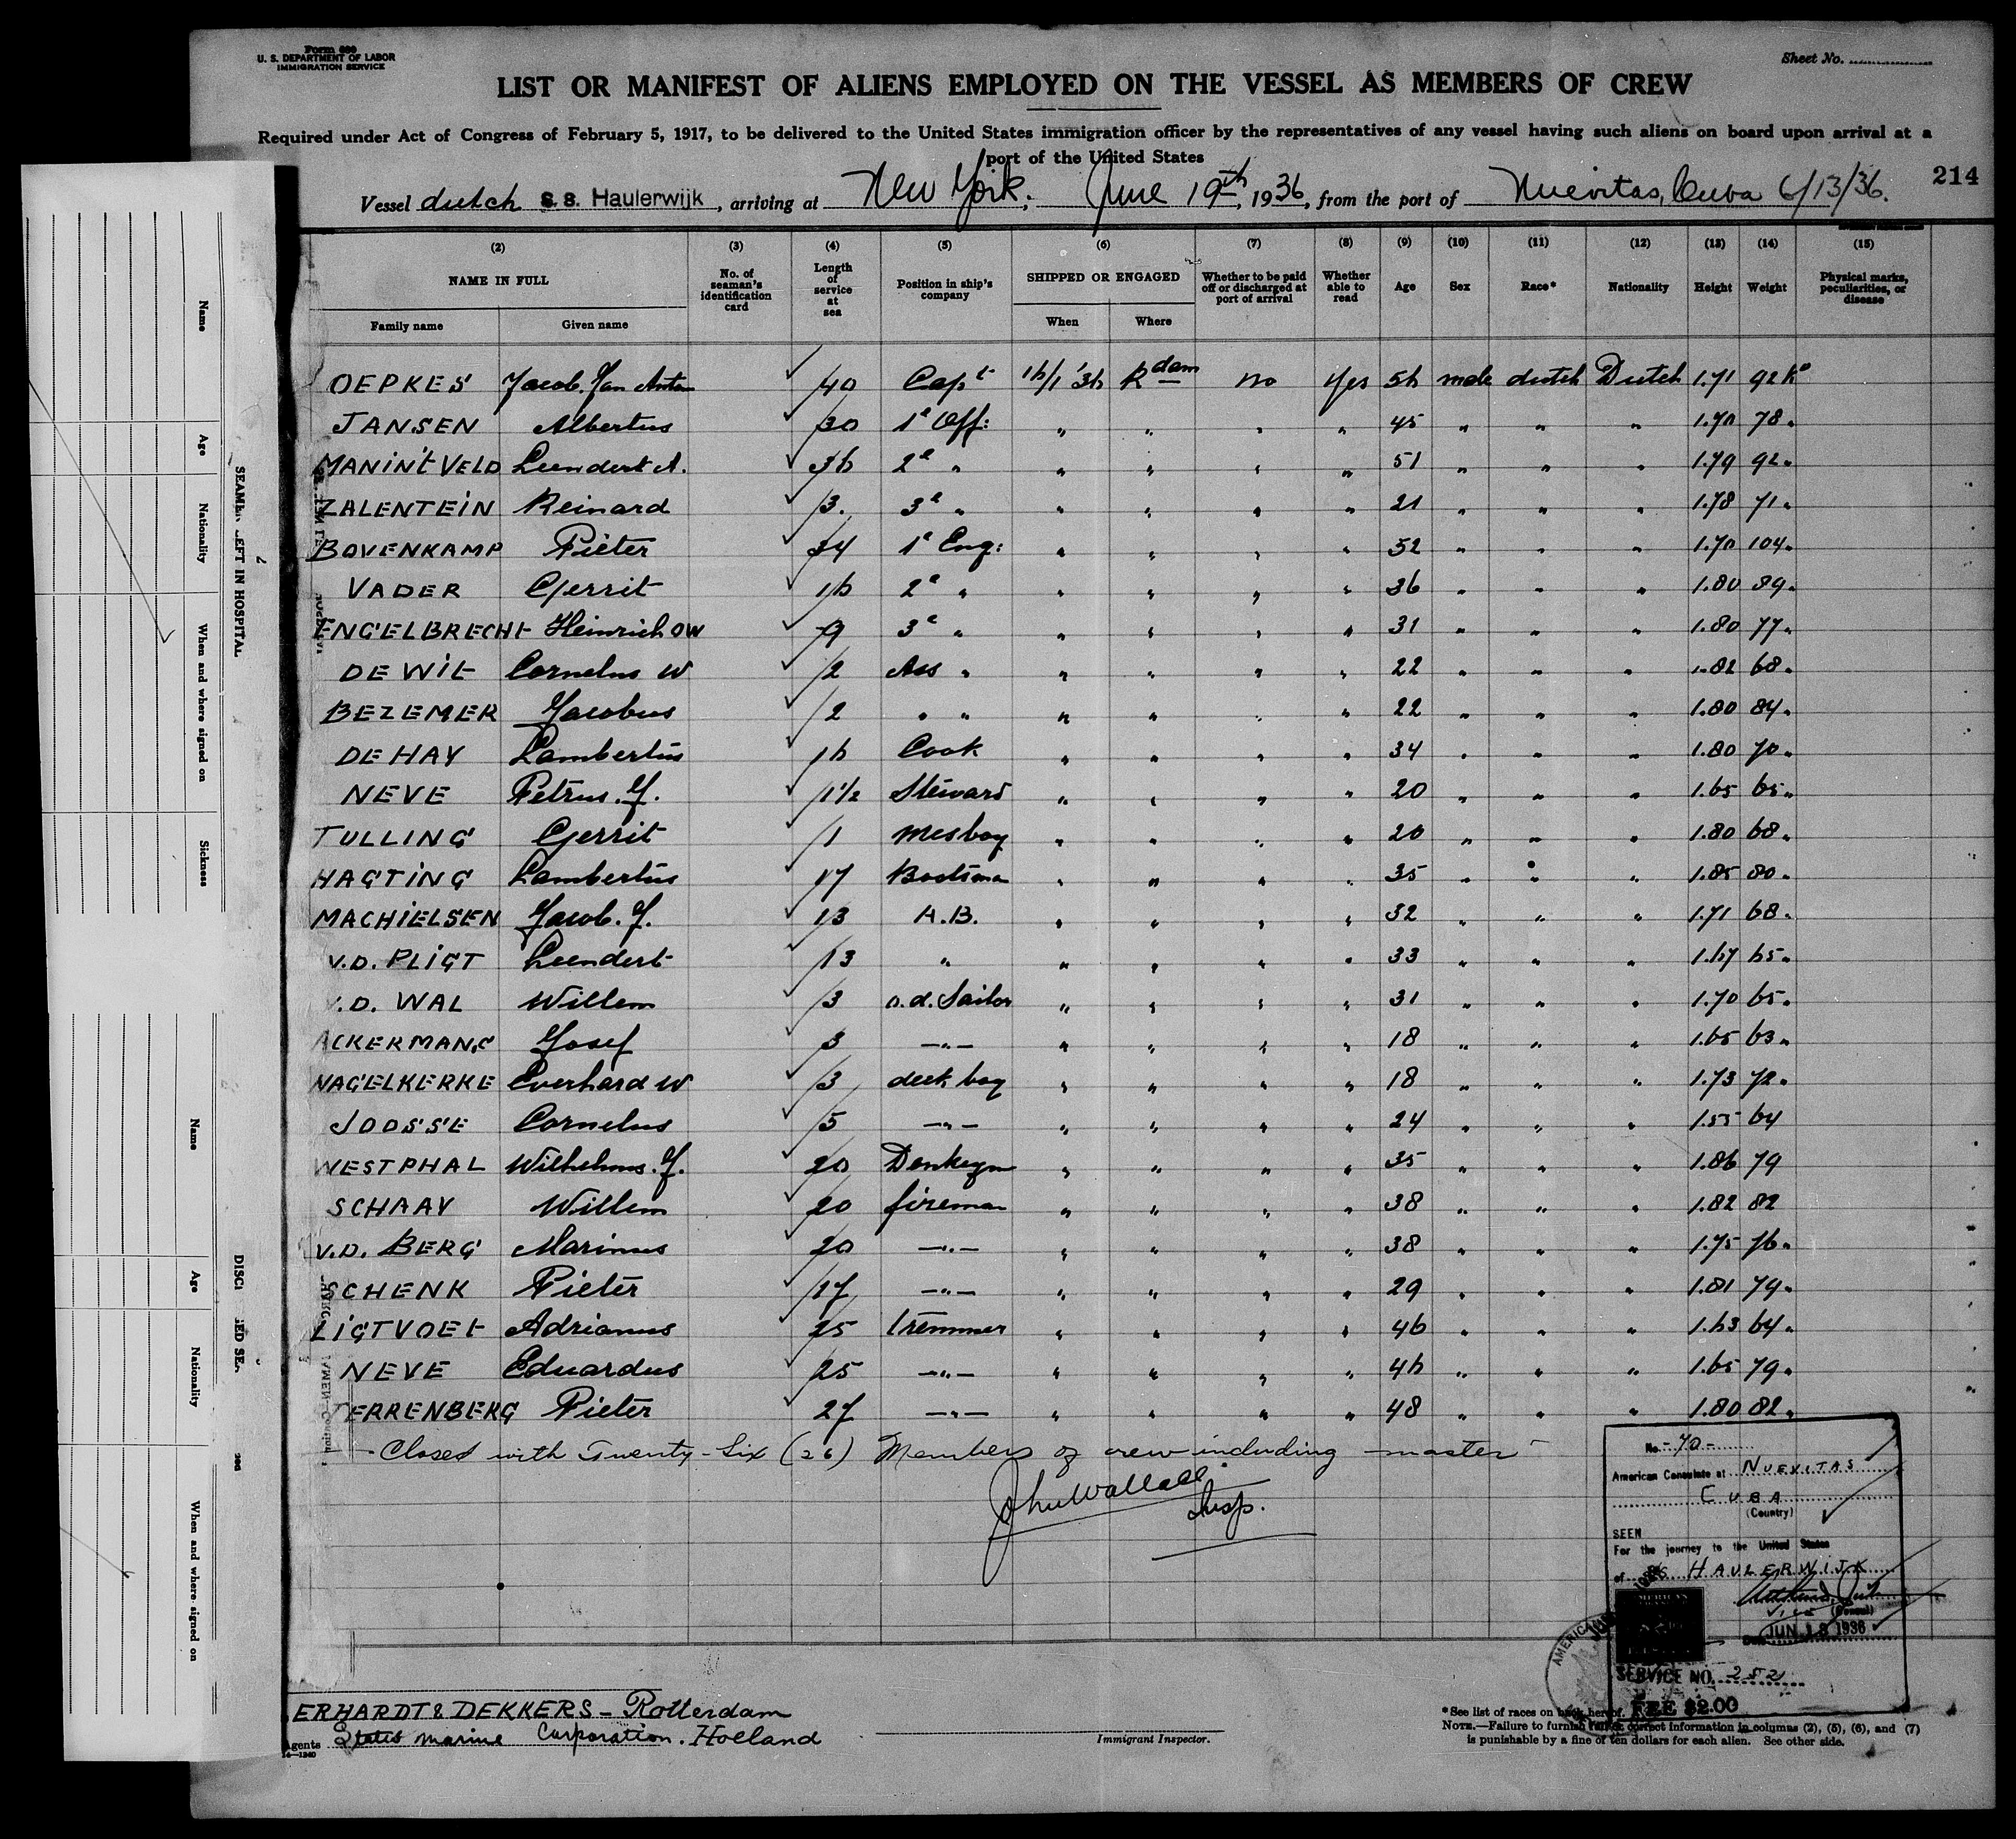 Form 680
U. S. DEPARTMENT OF LABOR
IMMIGRATION SERVICE
Sheet No.
LIST OR MANIFEST OF ALIENS EMPLOYED ON THE VESSEL AS MEMBERS OF CREW
Required under Act of Congress of February 5, 1917, to be delivered to the United States immigration officer by the representatives of any vessel having such aliens on board upon arrival at a
port of the United States
214
Vessel dutch S. S. Haulerwijk, arriving at New York, June 19th, 1936, from the port of Nuevitas, Cuba 6/13/36.
(2) (3) (4) (5) (6) (7) (8) (9) (10) (11) (12) (13) (14) (15)
NAME IN FULL No. of seaman's identification card Length of service at sea Position in ship's company SHIPPED OR ENGAGED Whether to be paid off or discharged at port of arrival Whether able to read Age Sex Race* Nationality Height Weight Physical marks, peculiarities, or disease
Family name Given name When Where
OEPKES Jacob. Jan Anton 40 Capt 16/1 '36 Rdam no Yes 56 male dutch Dutch 1.71 92 Ko
JANSEN Albertus 30 1e Off: " " " " 45 " " " 1.70 78 "
MANIN'T VELD Leendert A. 36 2e " " " " " 51 " " " 1.79 92 "
ZALENTEIN Reinard 3. 3e " " " " " 21 " " " 1.78 71 "
BOVENKAMP Pieter 34 1e Eng: " " " " 52 " " " 1.70 104 "
VADER Gerrit 16 2e " " " " " 36 " " " 1.80 89 "
ENGELBRECHT Heinrich OW 9 3e " " " " " 31 " " " 1.80 77 "
DE WIT Cornelus W 2 Ass " " " " " 22 " " " 1.82 68 "
BEZEMER Jacobus 2 " " " " " " 22 " " " 1.80 84 "
DE HAY Lambertus 16 Cook " " " " 34 " " " 1.80 70 "
NEVE Petrus. J. 1½ Steward " " " " 20 " " " 1.65 65 "
TULLING Gerrit 1 mesboy " " " " 20 " " " 1.80 68 "
HAGTING Lambertus 17 Bootsman " " " " 35 " " " 1.85 80 "
MACHIELSEN Jacob. J. 13 A.B. " " " " 32 " " " 1.71 68 "
V.D. PLIGT Leendert 13 " " " " " 33 " " " 1.67 65 "
V.D. WAL Willem 3 o.d. Sailor " " " " 31 " " " 1.70 65 "
ACKERMANS Josef 3 —"— " " " " 18 " " " 1.65 63 "
NAGELKERKE Everhard W 3 deck boy " " " " 18 " " " 1.73 72 "
JOOSSE Cornelus 5 —"— " " " " 24 " " " 1.55 64
WESTPHAL Wilhelmus. J. 20 Donkeym " " " " 35 " " " 1.86 79
SCHAAY Willem 20 fireman " " " " 38 " " " 1.82 82
V.D. BERG Marinus 20 —"— " " " " 38 " " " 1.75 76 "
SCHENK Pieter 17 —"— " " " " 29 " " " 1.81 79 "
LIGTVOET Adrianus 25 tremmer " " " " 46 " " " 1.63 64 "
NEVE Eduardus 25 —"— " " " " 46 " " " 1.65 79 "
TERRENBERG Pieter 27 —"— " " " " 48 " " " 1.80 82 "
Closed with Twenty-Six (26) Members of crew including master
John Wallace
Insp.
No. -70-
American Consulate at NUEVITAS
CUBA
(Country)
SEEN
For the journey to the United States
of SS HAULERWIJK
Vice (Consul)
Date JUN 13 1936
SERVICE NO. 252
FEE $2.00
ERHARDT & DEKKERS - Rotterdam
Agents States Marine Corporation. Holland
14—1240
Immigrant Inspector.
*See list of races on back hereof.
NOTE.—Failure to furnish full or correct information in columns (2), (5), (6), and (7)
is punishable by a fine of ten dollars for each alien. See other side.
Name
Age
Nationality
When and where signed on
Sickness
LEFT IN HOSPITAL
Name
Age
Nationality
When and where signed on